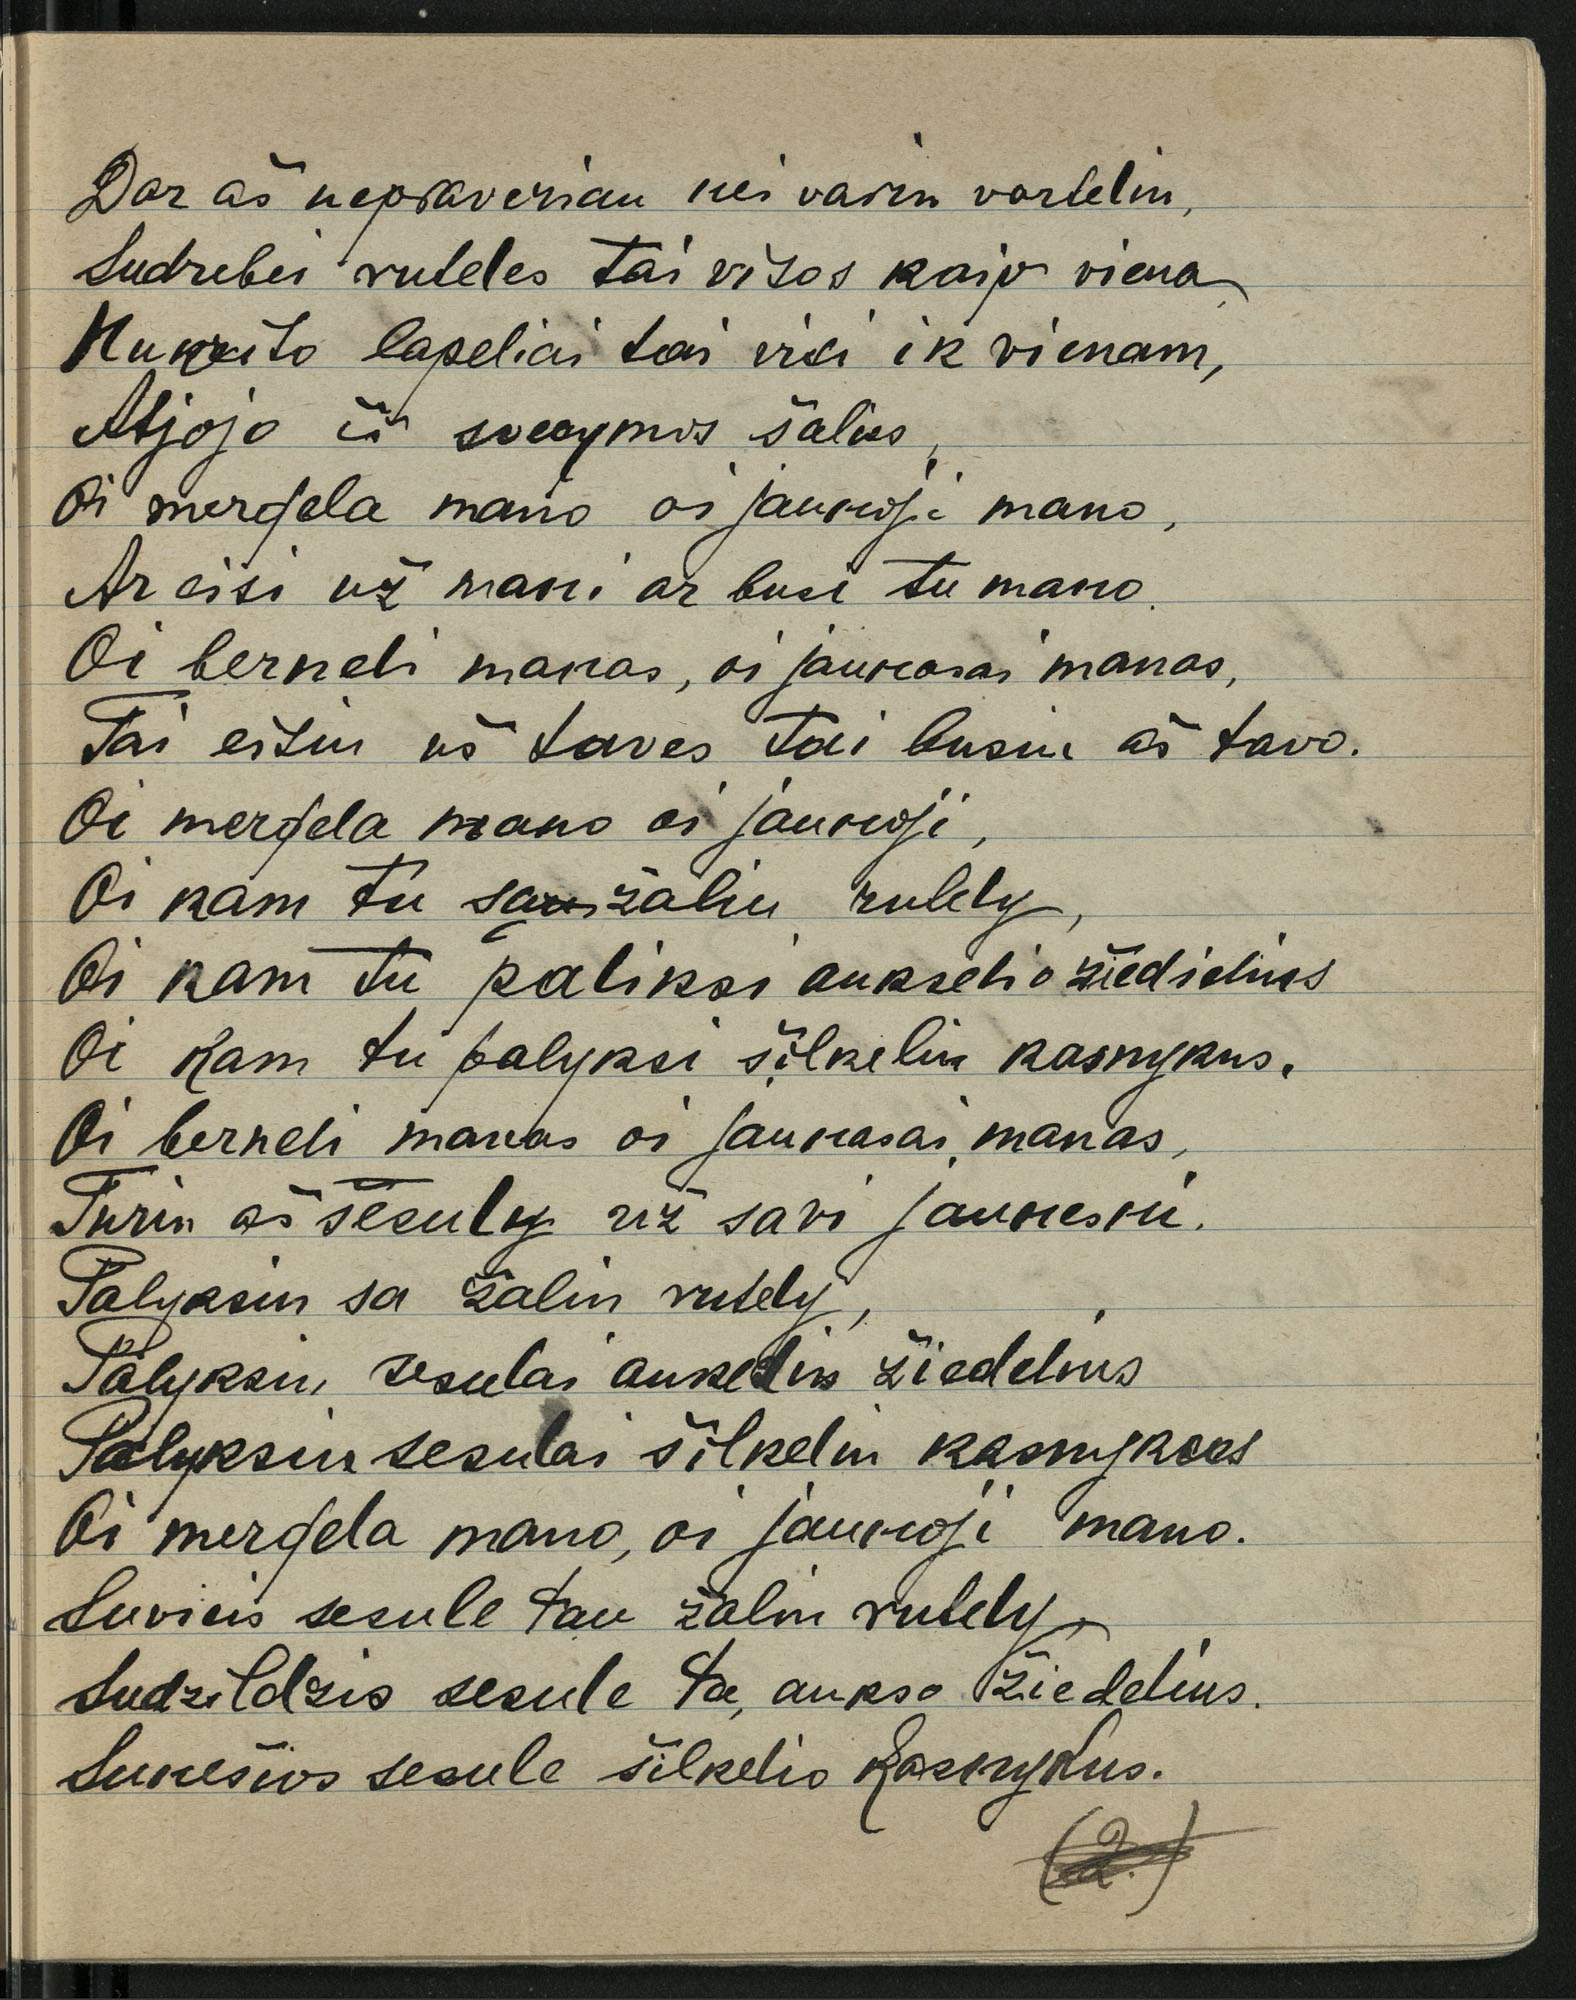 Dar aš nepraveriau nei variu varteliu,
Sudrebei ruteles tai visos kaip viena,
Nukrito lapeliai tai visi ik vienam,
Atjojo iš svecymos šalies,
Oi mergela mano oi jaunoji mano,
Ar eisi už mani ar busi tu mano.
Oi berneli manas, oi jaunasai manas,
Tai eisiu uš taves tai busiu aš tavo.
Oi mergela mano oi jaunoji,
Oi kam tu sa žaliu rutely,
Oi kam tu paliksi aukselio žiedielius
Oi kam tu palyksi šilkeliu kasnykus.
Oi berneli manas oi jaunasai manas,
Turiu aš šesuly už savi jaunesni.
Palyksiu sa žaliu rutely,
Palyksiu sesulai aukseliu žiedelius
Palyksiu sesulai šilkeliu kasnykus
Oi mergela mano, oi jaunoji mano.
Suvicis sesule tau žaliu rutely,
Sudzildzis sesule ta, aukso žiedelius.
Sunešios sesule šilkelio kasnykus.
(2.)